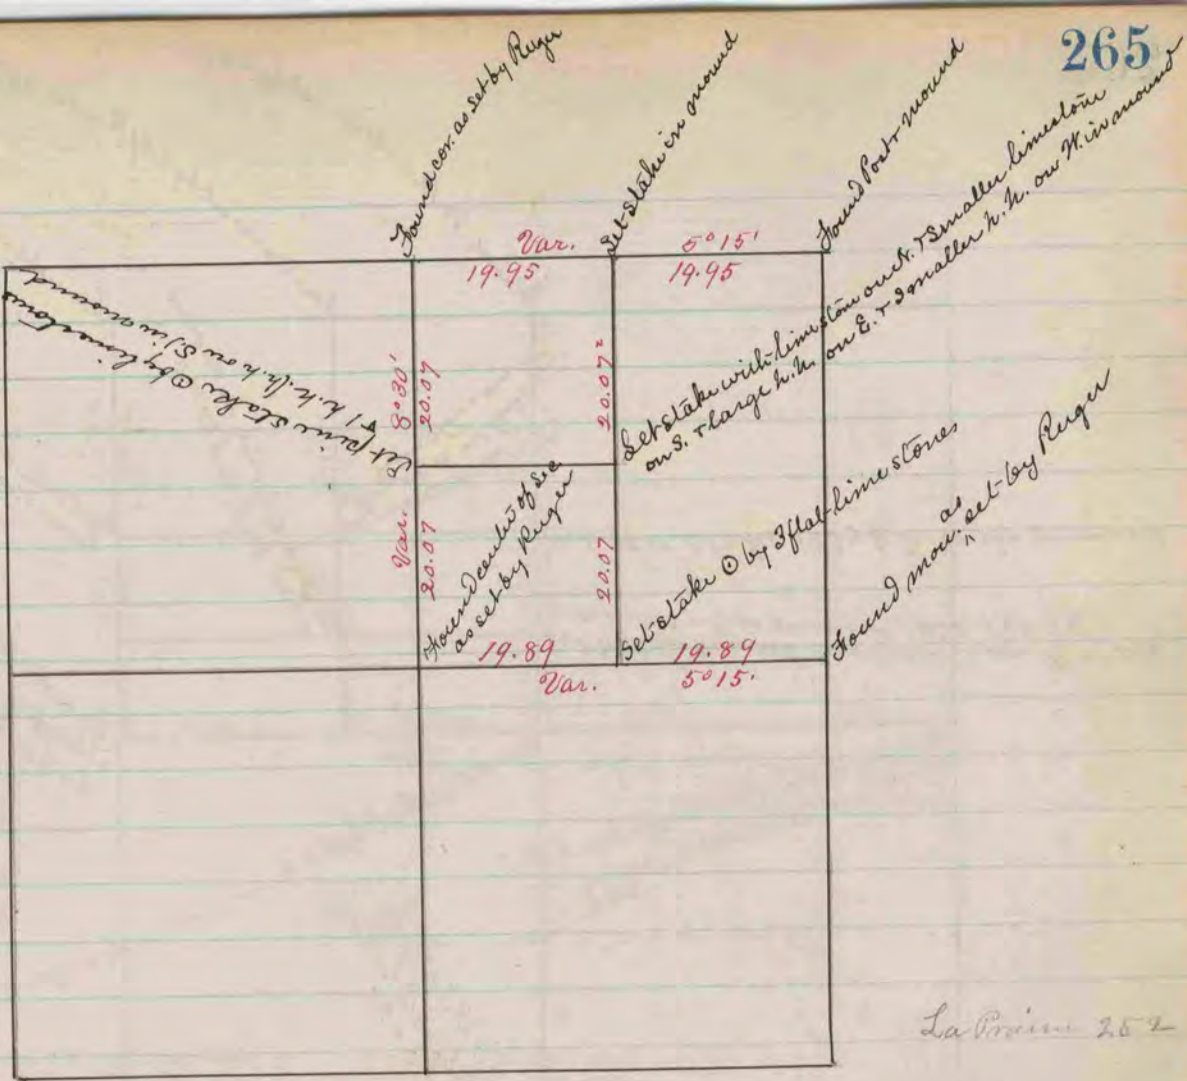 265
Found cor. as set by Ruger
Set stake in mound
Found Post & mound
Var. 5°15'
19.95 19.95
Set pine stake ⊙ by limestone
& 1 h.h. (h.h. on S.) in mound
Var. 8°30'
20.07
20.07²
Set stake with limestone on N. & smaller limestone
on S. & large h.h. on E. & smaller h.h. on W. in mound
20.07
20.07
Found center of Sec
as set by Ruger
Set stake ⊙ by 3 flat lime stones
Found mon. as set by Ruger
19.89 19.89
Var. 5°15'
La Prairie 252